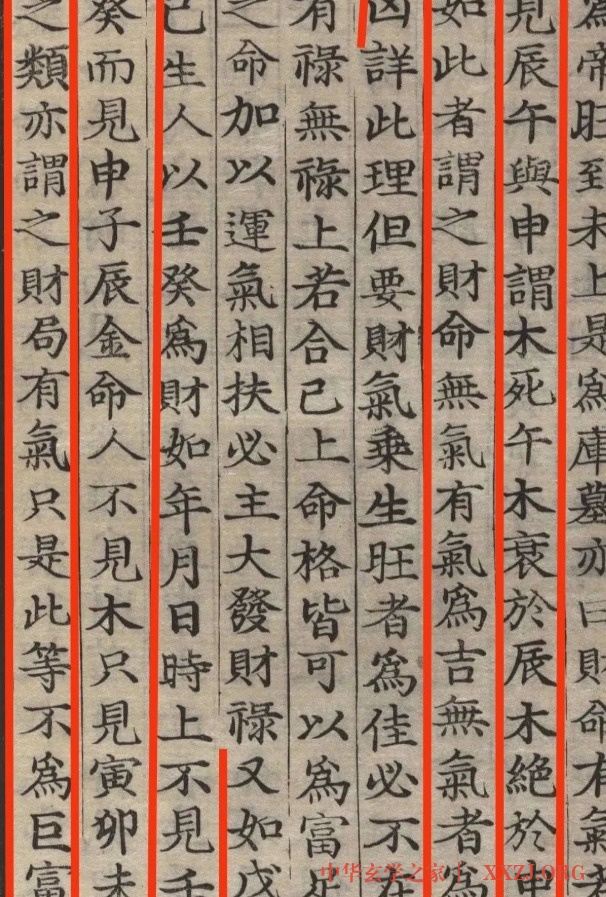 為帝旺至未上是為庫墓亦曰財命有氣若
見辰午與申謂木死午木衰於辰木絕於申
如此者謂之財命無氣有氣為吉無氣者為
凶詳此理但要財氣乗生旺者為佳必不在
有祿無祿上若合己上命格皆可以為富足
之命加以運氣相扶必主大發財祿又如戊
己生人以壬癸為財如年月日時上不見壬
癸而見申子辰金命人不見木只見寅卯未
之類亦謂之財局有氣只是此等不為巨富
中华玄学之家 XXZJ.ORG